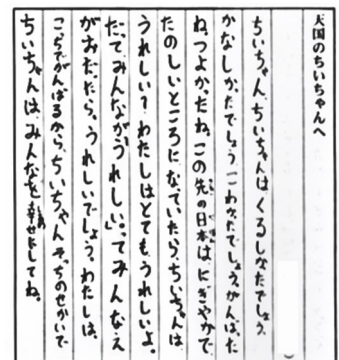 天国のちいちゃんへ
ちいちゃん、ちいちゃんは、くるしかったでしょう。
かなしかったでしょう。こわかったでしょう。がんばった
ね。つよかったね。この先の日本は、にぎやかで、
たのしいところになっていたら、ちいちゃんは
うれしい?わたしはとても、うれしいよ。
だってみんなが「うれしい。」ってみんなえ
がおだったら、うれしいでしょう。わたしは、
こっちでがんばるから、ちいちゃんそっちのせかいで
ちいちゃんは、みんなを幸せにしてね。